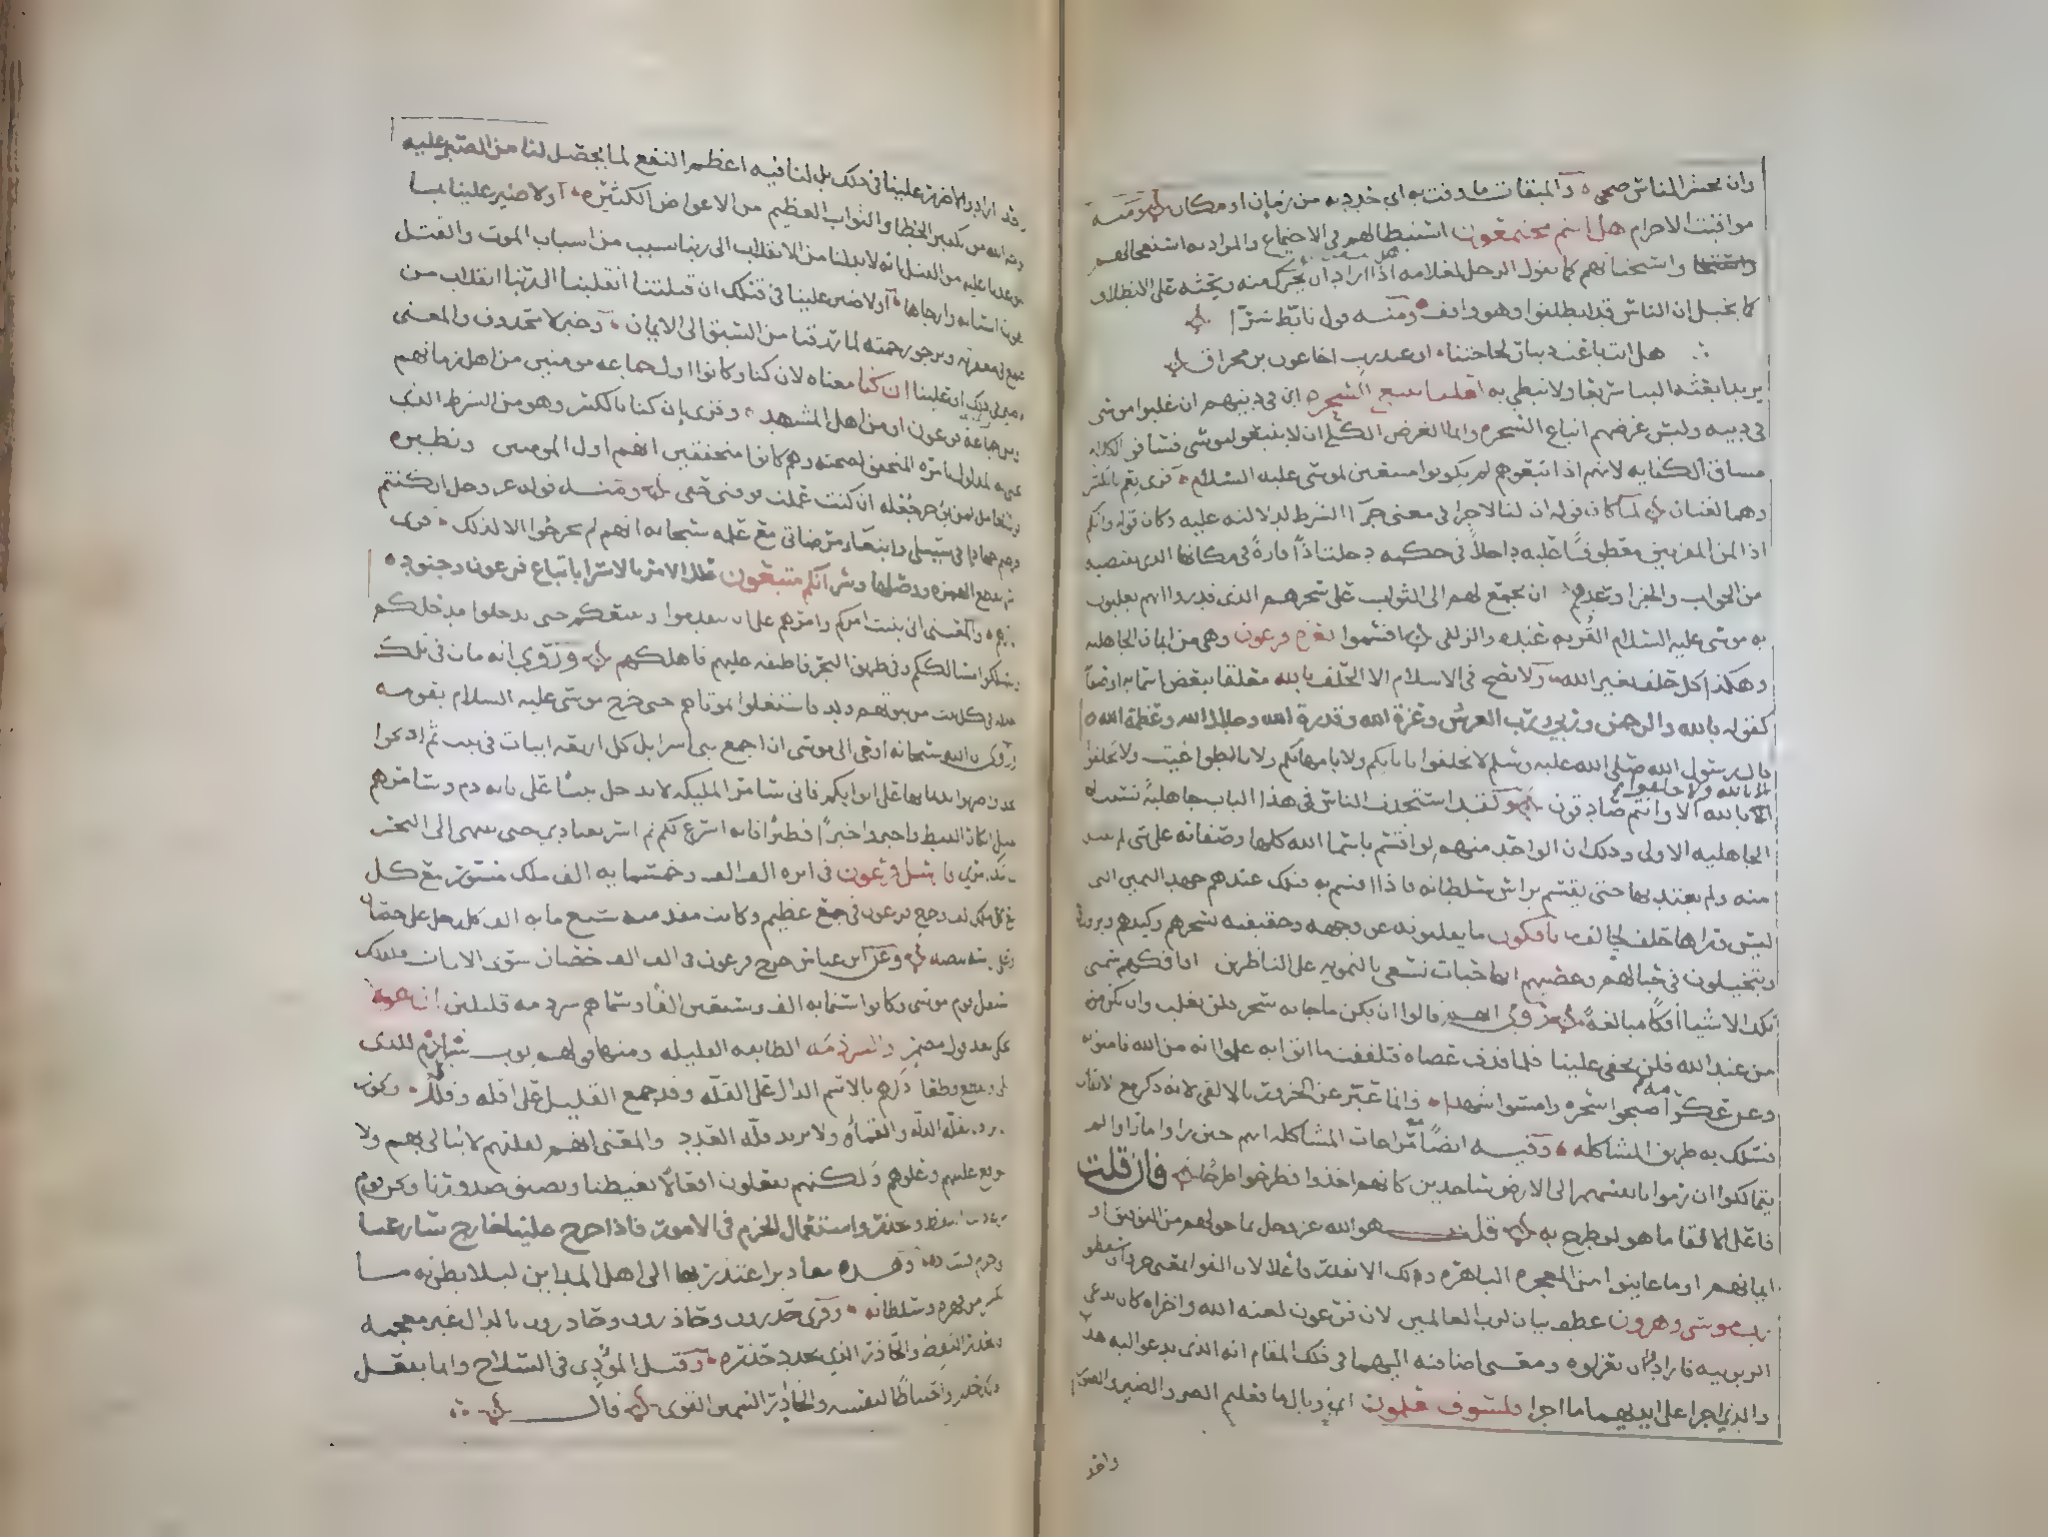 وان يحشر الناس ضحى والميقات ما وقت به اي حدد به من زمان او مكان ومنه
مواقيت الاحرام هل انتم مجتمعون استبطا لهم في الاجتماع والمراد به استعجالهم
واستحثاثهم كما يقول الرجل لغلامه هل منطلق اذا اراد ان يحرك منه ويحثه على الانطلاق
كما يخيل ان الناس قد انطلقوا وهو واقف ومنه قول تابط شرا
هل انت باعث دينار لحاجتنا او عبد رب اخا عون بن مخراق
يريد ابعثه الينا سريعا ولا تبطي به لعلنا نتبع السحرة اي في دينهم ان غلبوا موسى
في دينه وليس غرضهم اتباع السحره وانما الغرض الكلي ان لا يتبعوا موسى فساقوا الكلام
مساق الكنايه لانهم اذا اتبعوهم لم يكونوا متبعين لموسى عليه السلام قرى نعم بالكسر
وهما لغتان لما كان قوله ان لنا لاجرا في معنى جزا الشرط لدلالته عليه وكان قوله وانكم
اذا لمن المقربين معطوفا عليه داخلا في حكمه دخلت اذا قارة في مكانها الذي تقتضيه
من الجواب والجزا وعدهم ان يجمع لهم الى الثواب على سحرهم الذي قدروا انهم يغلبون
به موسى عليه السلام القربه عنده والزلفى اقسموا بعزة فرعون وهي من ايمان الجاهليه
وهكذا كل حلف بغير الله ولا يصح في الاسلام الا الحلف بالله معلقا ببعض اسمايه او صفاته
كقوله بالله والرحمن وربي ورب العرش وعزة الله وقدرة الله وجلال الله وعظمة الله
قال رسول الله صلى الله عليه وسلم لا تحلفوا بابايكم ولا بامهاتكم ولا بالطواغيت ولا تحلفوا
الا بالله ولا تحلفوا
بالله الا وانتم صادقون ولقد استحدث الناس في هذا الباب جاهلية نسيت لها
الجاهليه الاولى وذلك ان الواحد منهم لو اقسم باسما الله كلها وصفاته على شي لم يقبل
منه ولم يعتد بها حتى يقسم براس سلطانه فاذا اقسم به فتلك عندهم جهد اليمين التي
ليس وراها حلف لحالف ما يافكون ما يقلبونه عن وجهه وحقيقته بسحرهم وكيدهم ويزورونه
ويتخيلون في حبالهم وعصيهم انها حيات تسعى بالتمويه على الناظرين او افكهم سمى
تلك الاشيا افكا مبالغة روي انهم قالوا ان يكن ما جا به سحر فلن يغلب وان يكن من
من عند الله فلن يخفى علينا فلما قذف عصاه فتلقفت ما اتوا به علموا انه من الله فامنوا به
وعن عكرمه اصبحوا سحره وامسوا شهدا وانما عبر عن الخرور بالالقى لانه ذكر مع الالقات
فسلك به طريق المشاكله وفيه ايضا مع مراعات المشاكله انهم حين راوا ما راوا لم
يتمالكوا ان رموا بانفسهم الى الارض ساجدين كانهم اخذوا فطرحوا طرحا فان قلت
فاعل الالقا ما هو لو صرح به قلت هو الله عز وجل بما خولهم من التوفيق او
ايمانهم او ما عاينوا من المعجزه الباهره ولك الا تقدر فاعلا لان القوا بمعنى خروا وسقطوا
رب موسى وهرون عطف بيان لرب العالمين لان فرعون لعنه الله واخزاه كان يدعي
الربوبيه فارادوا ان يعزلوه ومعنى اضافته اليهما في ذلك المقام انه الذي يدعو اليه هذان
والذي اجرا على ايديهما ما اجرا فلسوف تعلمون اي وبال ما فعلتم الضر والضير والضور
واحد
ارادوا لا ضرر علينا في ذلك بل لنا فيه اعظم النفع لما يحصل لنا من الصبر عليه
من تكفير الخطايا والثواب العظيم مع الاعواض الكثيره او لا ضير علينا بما
من القتل انه لا بد لنا من الانقلاب الى ربنا بسبب من اسباب الموت والقتل
اسبابه وارجاها او لا ضير علينا في قتلك ان قتلتنا انقلبنا الى ربنا انقلاب من
يطمع في مغفرته ويرجو رحمته لما رزقنا من السبق الى الايمان وخبر لا محذوف والمعنى
لا ضير في ذلك او علينا ان كنا معناه لان كنا وكانوا اول جماعه مومنين من اهل زمانهم
او من رعية فرعون او من اهل المشهد وقرى ان كنا بالكسر وهو من الشرط الذي
يجي به المدل بامره المتحقق لصحته وهم كانوا متحققين انهم اول المومنين ونظيره
قول العامل لمن يوخر جعله ان كنت عملت لك فوفني حقي ومنه قوله عز وجل ان كنتم
خرجتم جهادا في سبيلي وابتغاء مرضاتي مع علمه سبحانه انهم لم يخرجوا الا لذلك قرى
اسر بقطع الهمزه ووصلها وسر انكم متبعون علل الامر بالاسرا باتباع فرعون وجنوده
اثارهم والمعنى اني بنيت امركم وامرهم على ان تتقدموا ويتبعوكم حتى يدخلوا مدخلكم
ويسلكوا مسلككم في طريق البحر فاطبقه عليهم فاهلكهم وروي انه مات في تلك
الليله في كل بيت من بيوتهم ولد فاشتغلوا بموتاهم حتى خرج موسى عليه السلام بقومه
وروي ان الله سبحانه اوحى الى موسى ان اجمع بني اسرايل كل اربعه ابيات في بيت ثم اذبحوا
الجدا واضربوا بدمايها على ابوابكم فاني سامر الملايكه لا يدخل بيتا على بابه دم وسامرهم
بقتل ابكار القبط واخبزوا خبزا فطيرا فانه اسرع لكم ثم اسر بعبادي حتى تنتهي الى البحر
فياتيك امري فارسل فرعون في اثره الف الف وخمسمايه الف ملك مسور مع كل
مع كل ملك الف وخرج فرعون في جمع عظيم وكانت مقدمته سبع مايه الف كل رجل على حصان
وعلى راسه بيضه وعن ابن عباس خرج فرعون في الف الف حصان سوى الاناث فلذلك
استقل قوم موسى وكانوا ستمايه الف وسبعين الفا وسماهم شرذمه قليلين ان هولا
محكي بعد قول مضمر والشرذمه الطايفه القليله ومنها قولهم ثوب شراذم للذي
بلي وتقطع قطعا ذكرهم بالاسم الدال على القله وقد جمع القليل على اقله وقلل ويجوز
ان يريد بالقله الذله والقماه ولا يريد قلة العدد والمعنى انهم لقلتهم لا يبالى بهم ولا
يتوقع غلبتهم وعلوهم ولكنهم يفعلون افعالا تغيظنا وتضيق صدورنا ونحن قوم
من عادتنا التيقظ والحذر واستعمال الحزم في الامور فاذا خرج علينا خارج سارعنا
الى حسم فساده وهذه معاذير اعتذر بها الى اهل المداين ليلا يظن به ما
يكسر من قهره وسلطانه وقرى حذرون وحاذرون وحادرون بالدال غير معجمه
فالحذر اليقظ والحاذر الذي يجدد حذره وقيل المودي في السلاح وانما يفعل
ذلك حذرا واحتياطا لنفسه والحادر السمين القوي قال